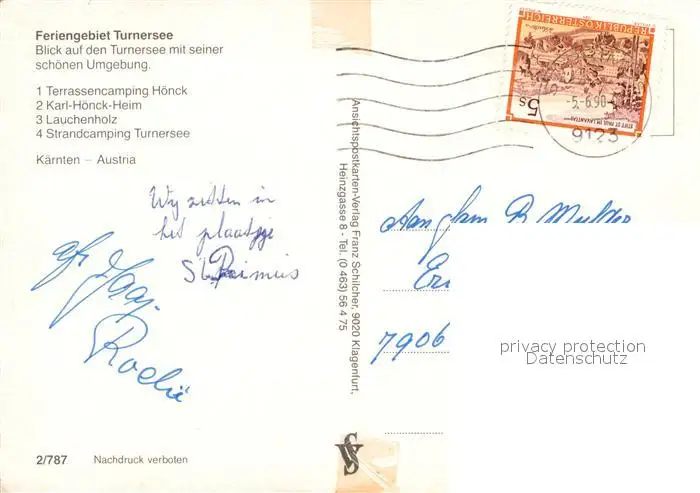 Feriengebiet Turnersee
Blick auf den Turnersee mit seiner
schönen Umgebung.
1 Terrassencamping Hönck
2 Karl-Hönck-Heim
3 Lauchenholz
4 Strandcamping Turnersee
Kärnten – Austria
Wy zitten in
het plaatsje
St Primus
Jaap
Roelie
2/787 Nachdruck verboten
Ansichtspostkarten-Verlag Franz Schilcher, 9020 Klagenfurt,
Heinzgasse 8 - Tel. (0 463) 56 4 75
REPUBLIK ÖSTERREICH
5s
STIFT ST. PAUL IM LAVANTTAL
-5.-6.90-
9123
7906
privacy protection
Datenschutz